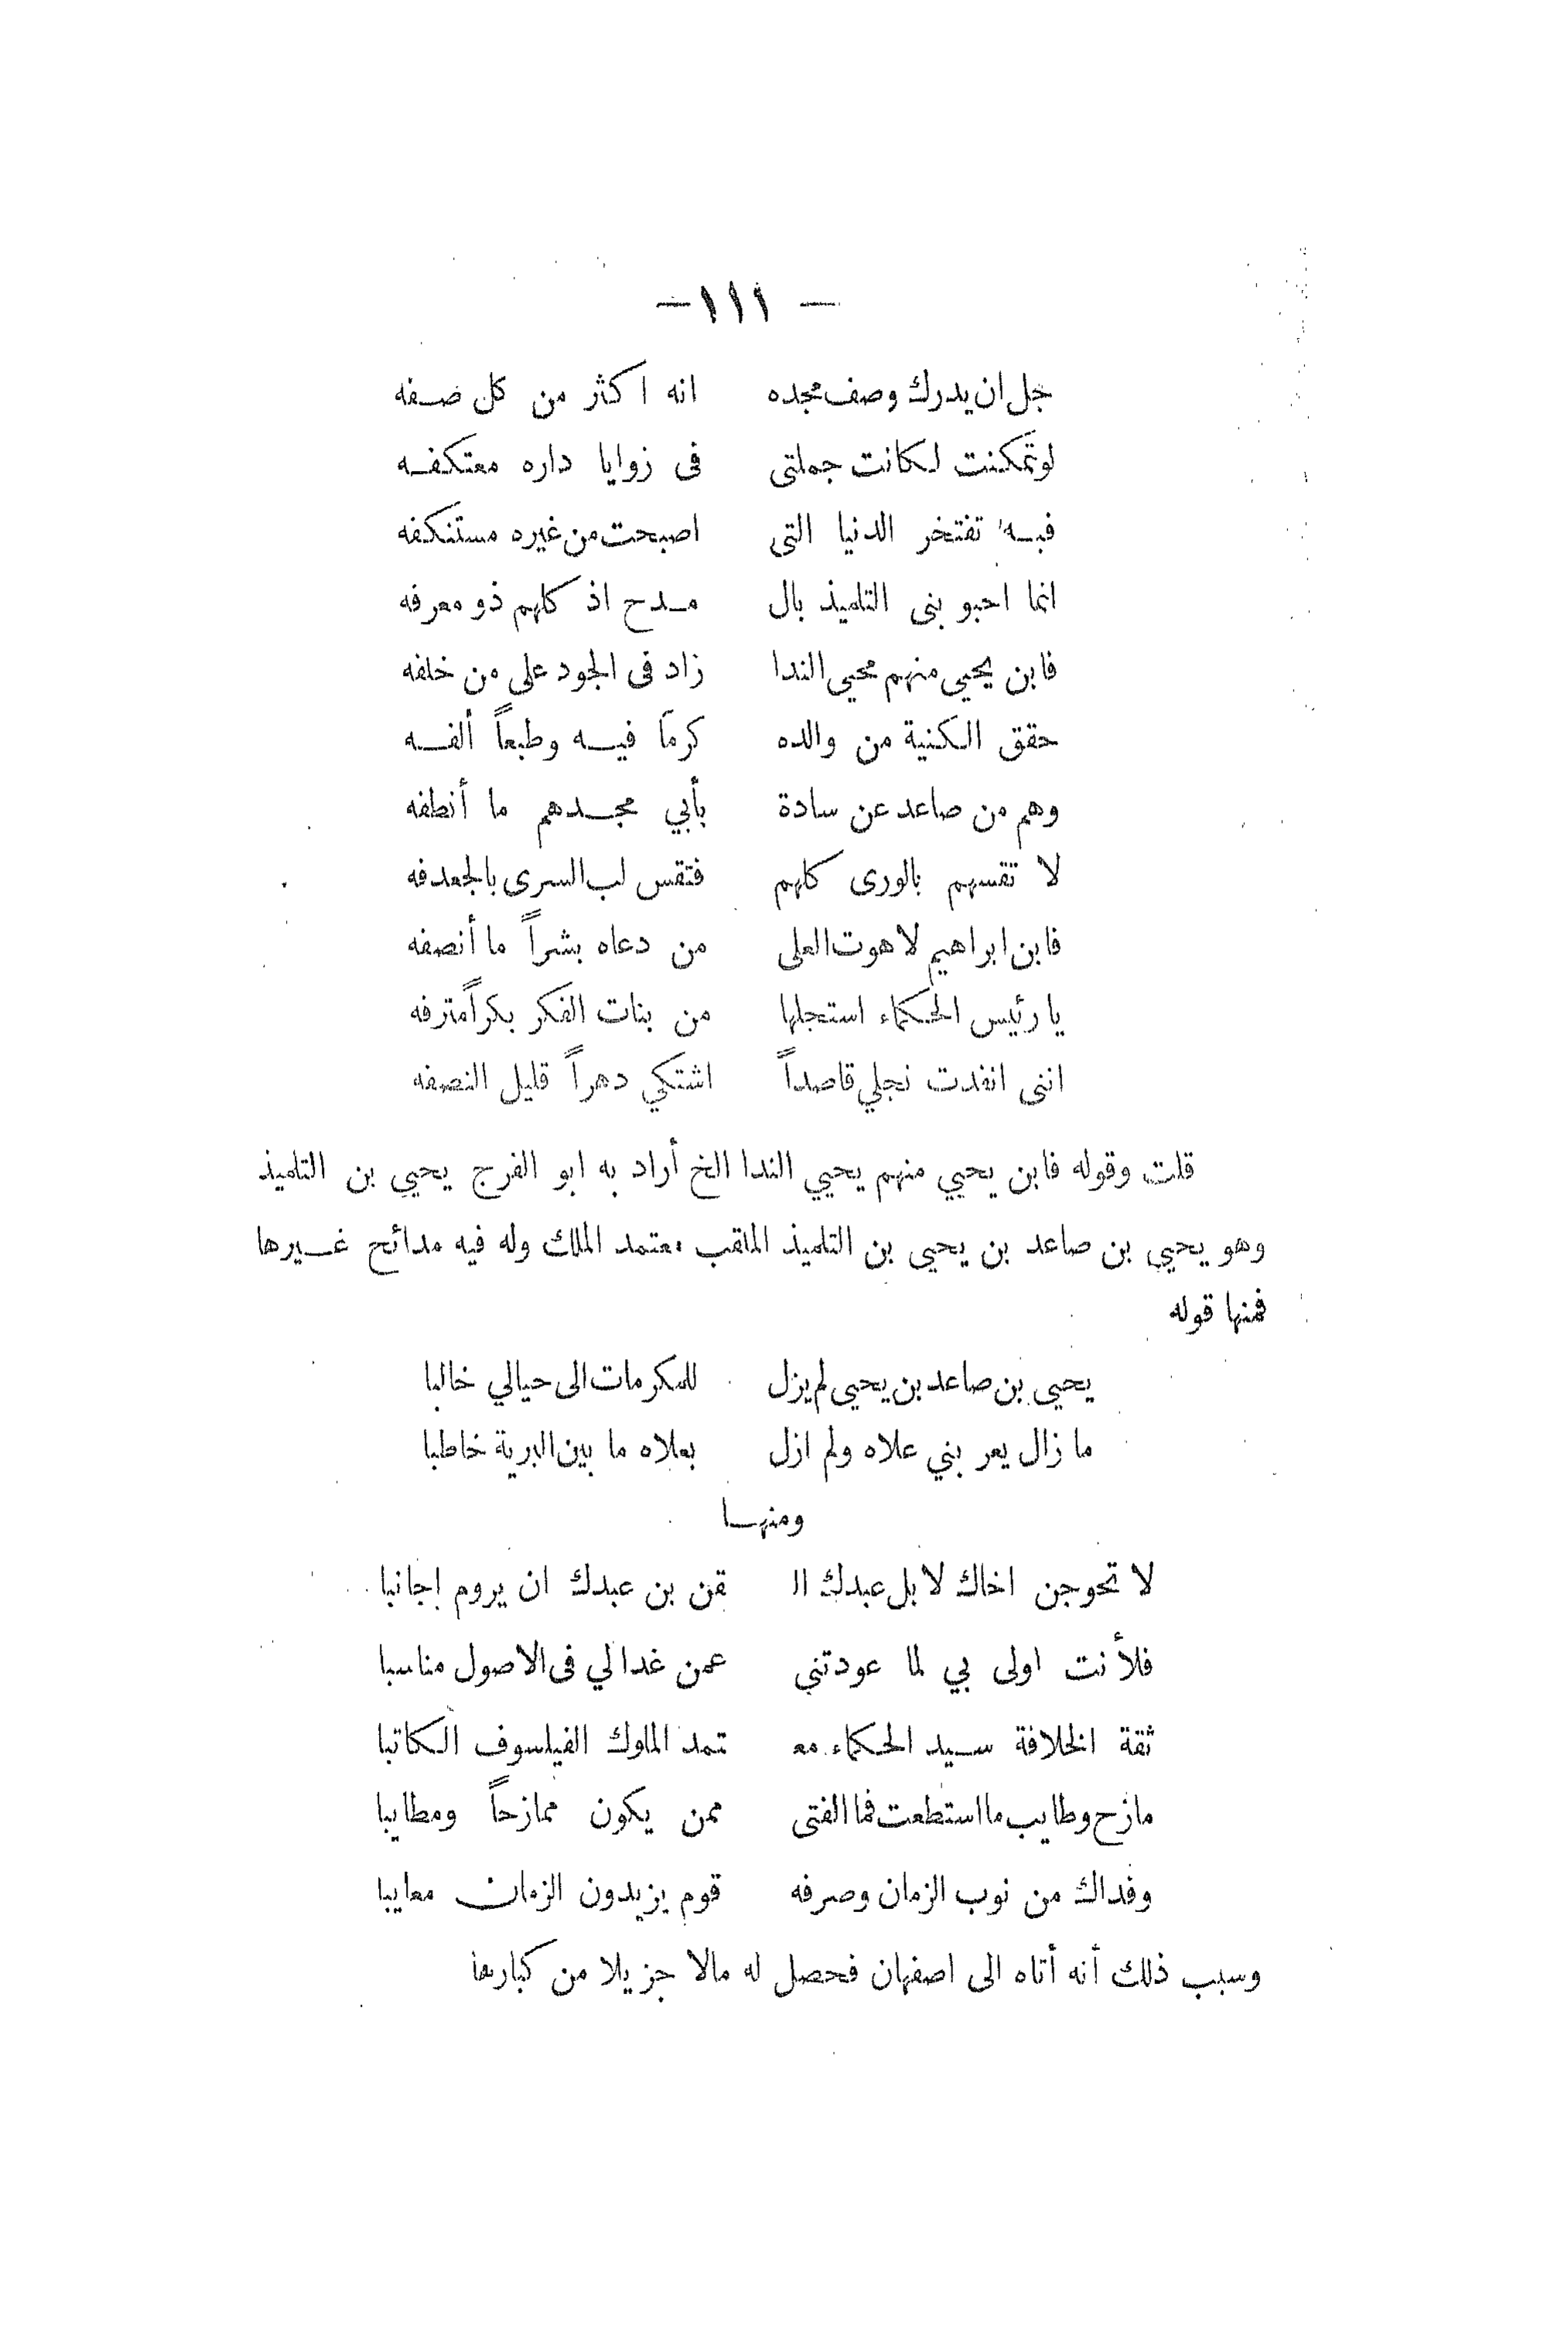 — ١١١ —
جل ان يدرك وصف مجده انه اكثر من كل صفه
لو تمكنت لكانت جملتى فى زوايا داره معتكفه
فبه تفتخر الدنيا التى اصبحت من غيره مستنكفه
انما احبو بنى التلميذ بال مدح اذ كلهم ذو معرفه
فابن يحيى منهم محيى الندا زاد فى الجود على من خلفه
حقق الكنية من والده كرماً فيه وطبعاً ألفه
وهم من صاعد عن سادة بأبي مجدهم ما أنطفه
لا تقسهم بالورى كلهم فتقس لب السرى بالجعدفه
فابن ابراهيم لاهوت العلى من دعاه بشراً ما أنصفه
يا رئيس الحكماء استجلها من بنات الفكر بكراً مترفه
اننى انفدت نجلي قاصداً اشتكي دهراً قليل النصفه
قلت وقوله فابن يحيي منهم يحيي الندا الخ أراد به ابو الفرج يحيي بن التلميذ
وهو يحيي بن صاعد بن يحيي بن التلميذ الملقب معتمد الملك وله فيه مدائح غيرها
فمنها قوله
يحيي بن صاعد بن يحيى لم يزل للمكرمات الى حيالي خالبا
ما زال يعر بني علاه ولم ازل بعلاه ما بين البرية خاطبا
ومنها
لا تحوجن اخاك لا بل عبدك ال قن بن عبدك ان يروم إجانبا
فلأنت اولى بي لما عودتني عمن غدا لي فى الاصول مناسبا
ثقة الخلافة سيد الحكماء مع تمد الملوك الفيلسوف الكاتبا
مازح وطايب ما استطعت فما الفتى ممن يكون ممازحاً ومطايبا
وفداك من نوب الزمان وصرفه قوم يزيدون الزمان معايبا
وسبب ذلك أنه أتاه الى اصفهان فحصل له مالا جزيلا من كبارها